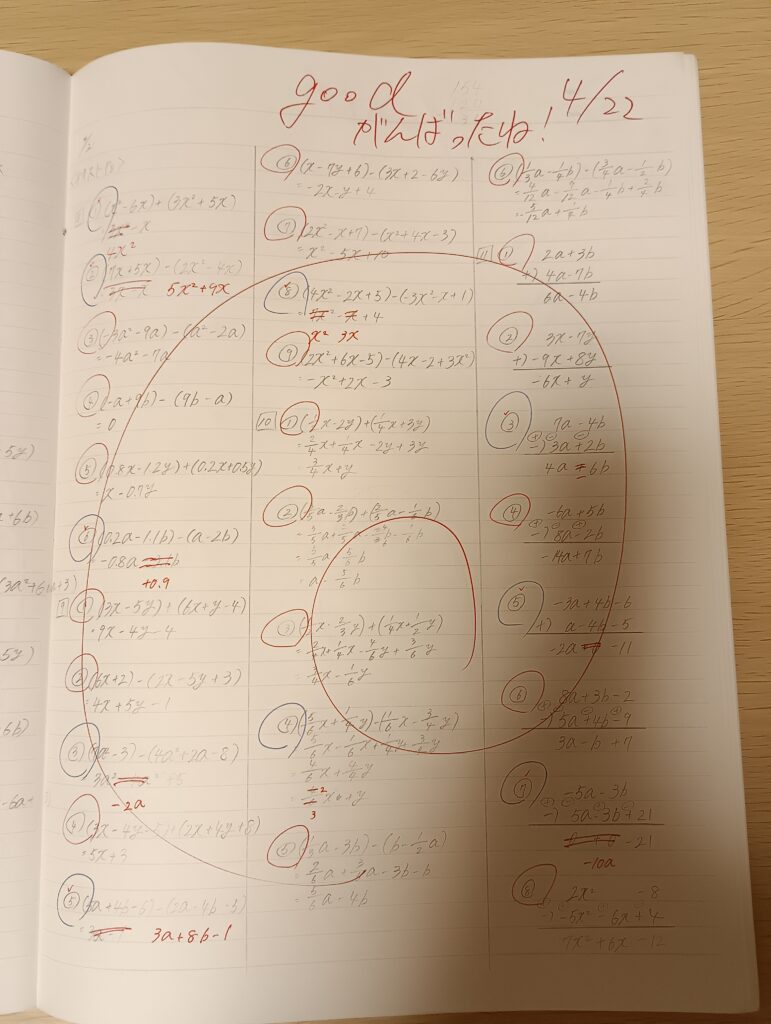 good 4/22
がんばったね!
① (x²-6x)+(3x²+5x)
4x²
② (7x+5x)-(2x²-4x)
5x²+9x
③ (-3a²-9a)-(a²-2a)
=-4a²-7a
④ (-a+9b)-(9b-a)
=0
⑤ (0.8x-1.2y)+(0.2x+0.5y)
=x-0.7y
⑥ (0.2a-1.1b)-(a-2b)
=-0.8a
+0.9
9 ① (3x-5y)+(6x+y-4)
=9x-4y-4
② (6x+2)-(2x-5y+3)
=4x+5y-1
③ -3)-(4a²+2a-8)
3a² +5
-2a
④ (3x-4y-5)+(2x+4y+8)
=5x+3
⑤ (6a+4b-6)-(3a-4b-5)
3a+8b-1
⑥ (x-7y+6)-(3x+2-6y)
=-2x-y+4
⑦ (2x²-x+7)-(x²+4x-3)
=x²-5x+10
⑧ (4x²-2x+5)-(-3x²-x+1)
+4
x² 3x
⑨ (2x²+6x-5)-(4x-2+3x²)
=-x²+2x-3
10 ① (½x-2y)+(¼x+3y)
=2/4x+1/4x-2y+3y
3/4x+y
②
=a-5/6b
③ (½x-2/3y)+(¼x+½y)
=2/4x+1/4x-4/6y+3/6y
=3/4x-1/6y
④ (5/6x+1/4y)-(1/6x-3/4y)
=5/6x-1/6x+1/4y+3/4y
=4/6x+4/4y
2
x+y
3
⑤ (1/3a-3b)-(b-½a)
=2/6a+3/6a-3b-b
=5/6a-4b
⑥ (1/3a-1/4b)-(3/4a-1/2b)
=4/12a-9/12a-1/4b+2/4b
=-5/12a+1/4b
11 ① 2a+3b
+) 4a-7b
6a-4b
② 3x-7y
+) -9x+8y
-6x+y
③ 7a-4b
-) 3a+2b
4a-6b
④ -6a+5b
-) 8a-2b
-14a+7b
⑤ -3a+4b-6
+) a-4b-5
-2a -11
⑥ 8a+3b-2
-) 5a+4b-9
3a-b+7
⑦ -5a-3b
-) 5a-3b+21
-21
-10a
⑧ 2x² -8
-) -5x²-6x+4
7x²+6x-12